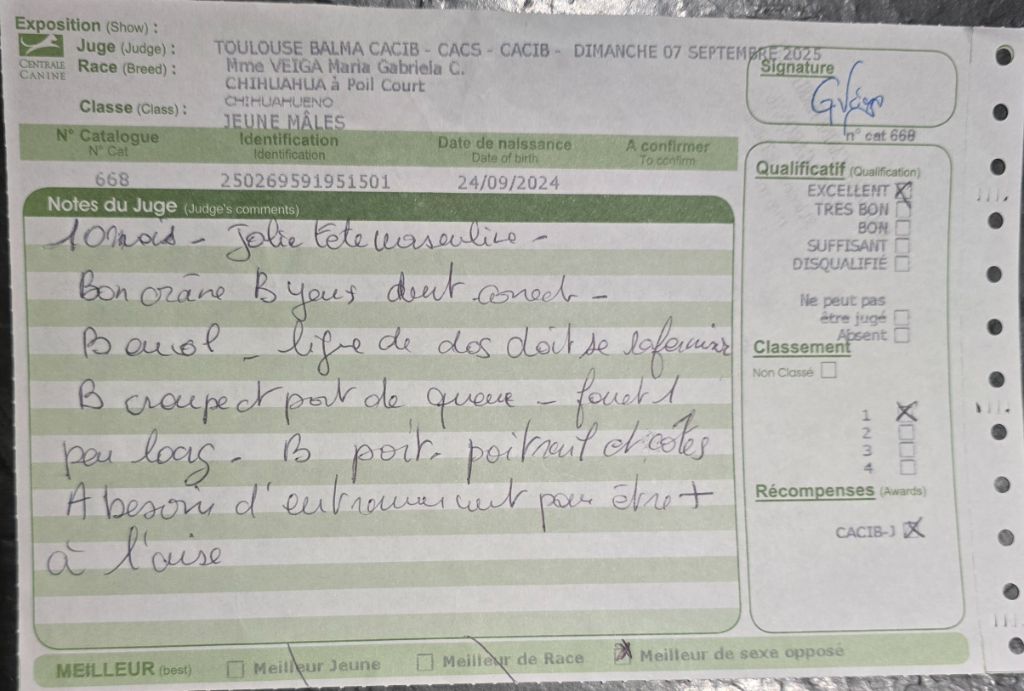 Exposition (Show) :
CENTRALE CANINE
Juge (Judge) : TOULOUSE BALMA CACIB - CACS - CACIB - DIMANCHE 07 SEPTEMBRE 2025
Race (Breed) : Mme VEIGA Maria Gabriela C.
CHIHUAHUA à Poil Court
CHIHUAHUENO
Classe (Class) : JEUNE MÂLES
N° Catalogue Identification Date de naissance A confirmer
N° Cat Identification Date of birth To confirm
668 250269591951501 24/09/2024
Notes du Juge (Judge's comments)
10 mois - Jolie tête masculine -
Bon crâne B yeux dent correct -
B encol - ligne de dos doit se rafermir
B croupe et port de queue - fouet 1
peu long - B poit. poitrail et côtes
A besoin d'entrainement pour être +
à l'aise
Signature
n° cat 668
Qualificatif (Qualification)
EXCELLENT
TRES BON
BON
SUFFISANT
DISQUALIFIÉ
Ne peut pas
être jugé
Absent
Classement
Non Classé
1
2
3
4
Récompenses (Awards)
CACIB-J
MEILLEUR (best) Meilleur Jeune Meilleur de Race Meilleur de sexe opposé